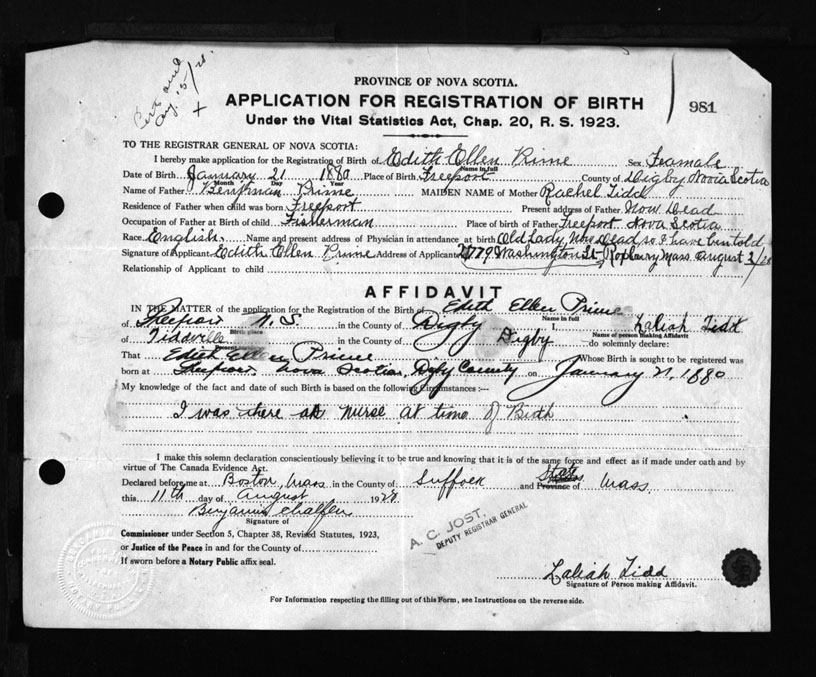 Cert and
Aug. 15/28
+
PROVINCE OF NOVA SCOTIA.
APPLICATION FOR REGISTRATION OF BIRTH
981
Under the Vital Statistics Act, Chap. 20, R. S. 1923.
TO THE REGISTRAR GENERAL OF NOVA SCOTIA:
I hereby make application for the Registration of Birth of Edith Ellen Prime Sex Feamale
Name in full
Date of Birth January 21 1880 Place of Birth Freeport County of Digby Novia Scotia
Month Day Year
Name of Father Benjiman Prime MAIDEN NAME of Mother Rachel Tidd
Residence of Father when child was born Freeport Present address of Father Now Dead
Occupation of Father at Birth of child Fisherman Place of birth of Father Freeport Nova Scotia
Race English Name and present address of Physician in attendance at birth Old Lady Now Dead, so I have bin told
Signature of Applicant Edith Ellen Prime Address of Applicant 2779 Washington St. Roxbury Mass. August 2/28
Relationship of Applicant to child
AFFIDAVIT
IN THE MATTER of the application for the Registration of the Birth of Edith Ellen Prime
Name in full
of Freeport N.S. in the County of Digby I, Laliah Tidd
Birth place Name of person making Affidavit
of Tiddville in the County of Digby do solemnly declare:
Present
That Edith Ellen Prime Whose Birth is sought to be registered was
born at Freeport Nova Scotia, Digby County on January 21, 1880
My knowledge of the fact and date of such Birth is based on the following Circumstances :—
I was there as nurse at time of Birth
I make this solemn declaration conscientiously believing it to be true and knowing that it is of the same force and effect as if made under oath and by
virtue of The Canada Evidence Act.
Declared before me at Boston, Mass in the County of Suffolk and Province of Mass.
this 11th day of August 1928
Benjamin Chalfen
Signature of
A. C. JOST,
DEPUTY REGISTRAR GENERAL
Commissioner under Section 5, Chapter 38, Revised Statutes, 1923,
or Justice of the Peace in and for the County of
If sworn before a Notary Public affix seal.
Laliah Tidd
Signature of Person making Affidavit.
For Information respecting the filling out of this Form, see Instructions on the reverse side.